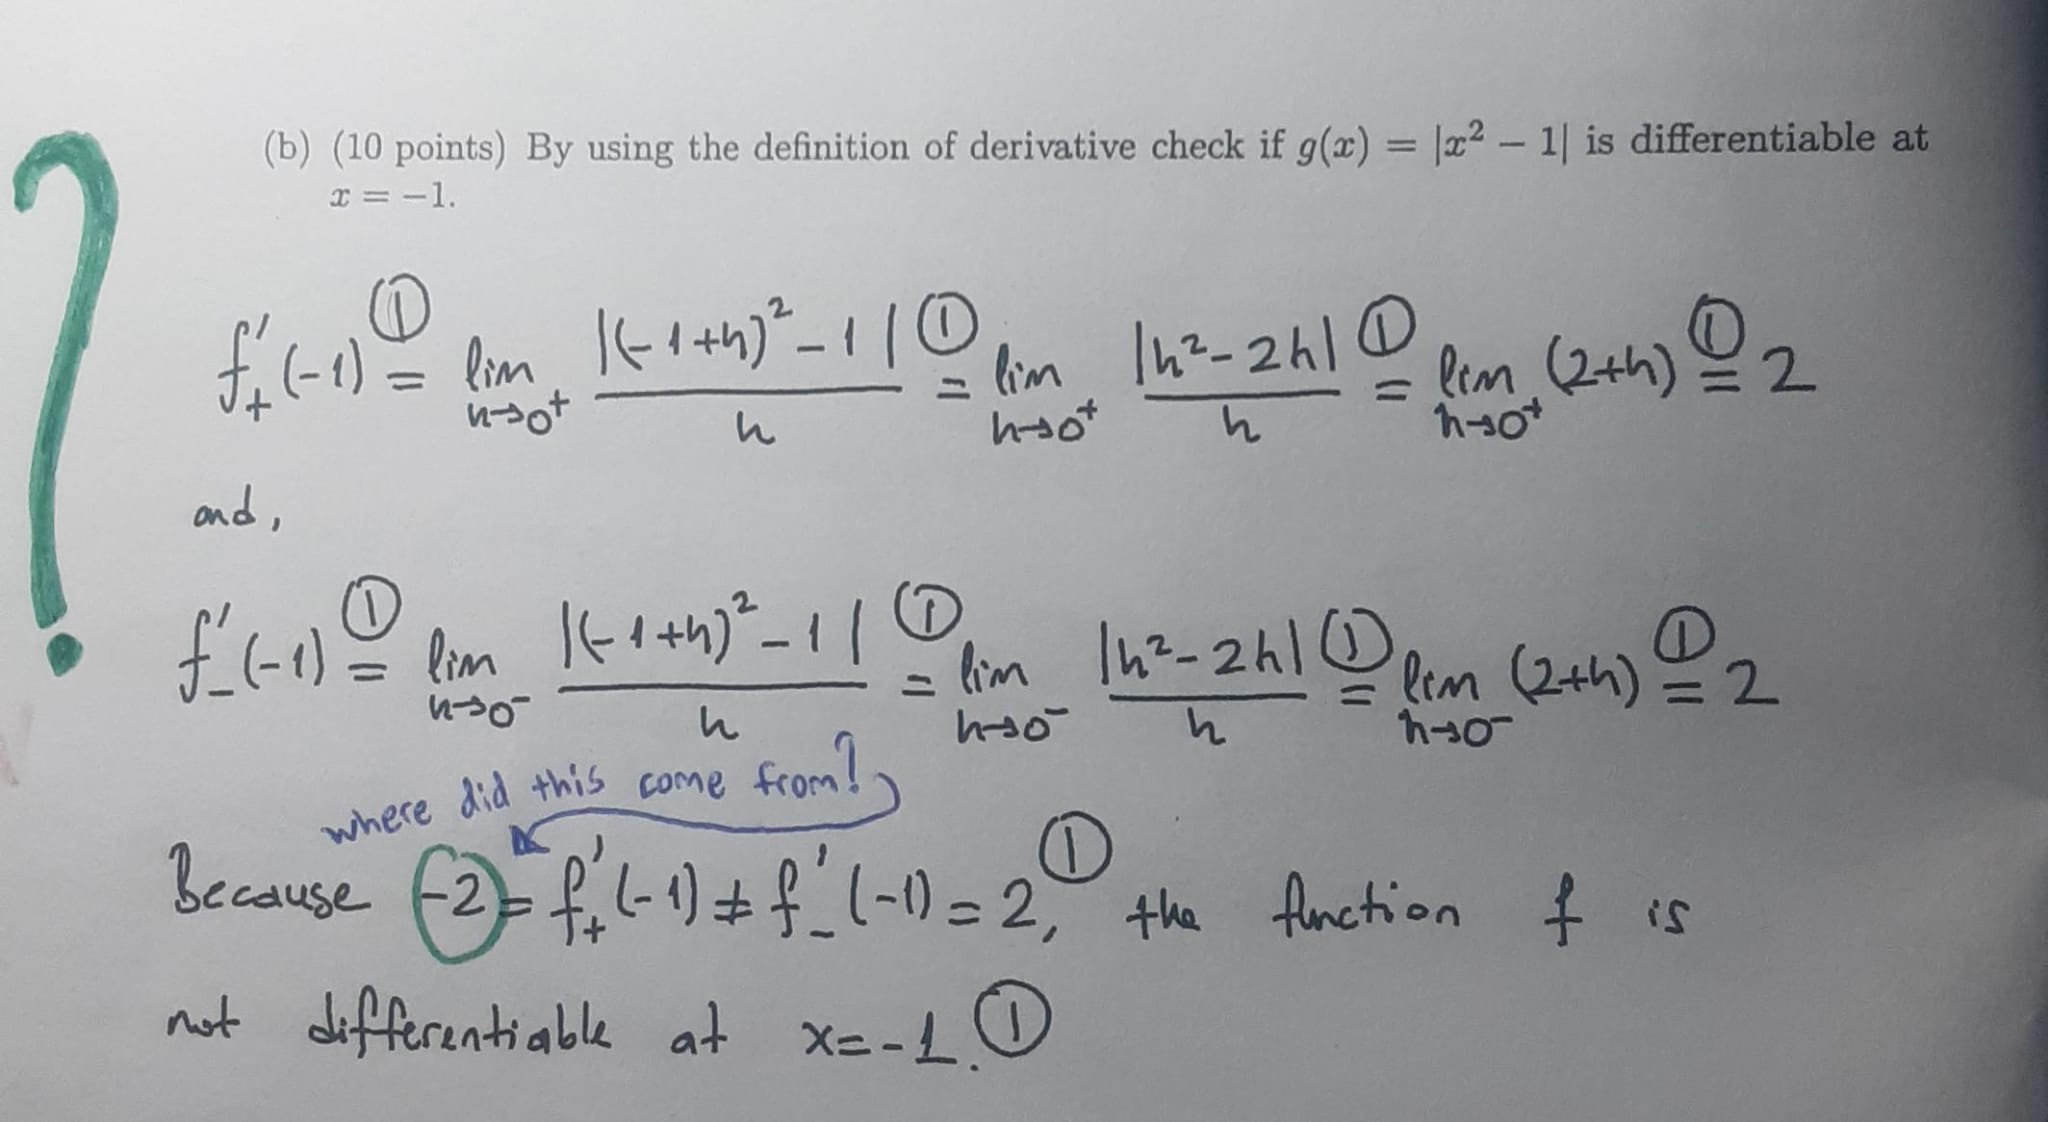 (b) (10 points) By using the definition of derivative check if g(x) = |x² − 1| is differentiable at
x = −1.
f₊'(-1) ①= lim_{h→0⁺} |(-1+h)²-1| / h ①= lim_{h→0⁺} |h²-2h| / h ①= lim_{h→0⁺} (2+h) ①= 2
and,
f₋'(-1) ①= lim_{h→0⁻} |(-1+h)²-1| / h ①= lim_{h→0⁻} |h²-2h| / h ①= lim_{h→0⁻} (2+h) ①= 2
where did this come from?
Because -2 = f₊'(-1) ≠ f₋'(-1) = 2, ① the function f is
not differentiable at x=-1. ①